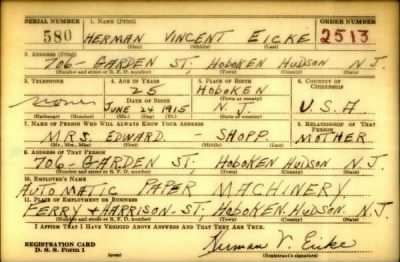 SERIAL NUMBER 1. NAME (Print) ORDER NUMBER
580 HERMAN VINCENT EICKE 2513
(First) (Middle) (Last)
2. ADDRESS (Print)
706- GARDEN ST. HOBOKEN HUDSON N.J.
(Number and street or R. F. D. number) (Town) (County) (State)
3. TELEPHONE 4. AGE IN YEARS 5. PLACE OF BIRTH 6. COUNTRY OF CITIZENSHIP
25 HOBOKEN
DATE OF BIRTH (Town or county)
none JUNE 24 1915 N. J. U.S.A
(Mo.) (Day) (Yr.) (State or country)
7. NAME OF PERSON WHO WILL ALWAYS KNOW YOUR ADDRESS 8. RELATIONSHIP OF THAT PERSON
MRS. EDWARD - SHOPP MOTHER
(Mr., Mrs., Miss) (First) (Middle) (Last)
9. ADDRESS OF THAT PERSON
706- GARDEN ST. HOBOKEN HUDSON N.J.
(Number and street or R. F. D. number) (Town) (County) (State)
10. EMPLOYER'S NAME
AUTOMATIC PAPER MACHINERY
11. PLACE OF EMPLOYMENT OR BUSINESS
FERRY + HARRISON-ST. HOBOKEN HUDSON N.J.
(Number and street or R. F. D. number) (Town) (County) (State)
I AFFIRM THAT I HAVE VERIFIED ABOVE ANSWERS AND THAT THEY ARE TRUE.
REGISTRATION CARD
D. S. S. Form 1 Herman V. Eicke
(Registrant's signature)